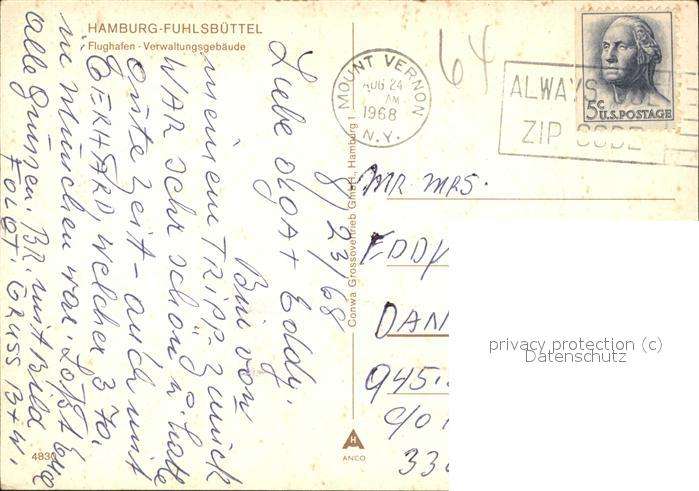 HAMBURG-FUHLSBÜTTEL
Flughafen - Verwaltungsgebäude
8/23/68
Liebe Olga + Eddy.
Bin von
meinem TRIPP zurück
WAR sehr schön u. hatte
gute Zeit - auch mit
GERHARD, welcher 3 TG.
in München war. Loßt Euch
alle grüssen. BR. mit Bild
FOLGT. GRUSS B+W.
4830
Conwa Grossovertrieb GmbH., Hamburg 1
H
ANCO
MOUNT VERNON
AUG 24
AM
1968
N.Y.
64
ALWAYS
ZIP CODE
5c U.S. POSTAGE
MR. MRS.
EDDY
DAN
945
C/O
33
privacy protection (c)
Datenschutz